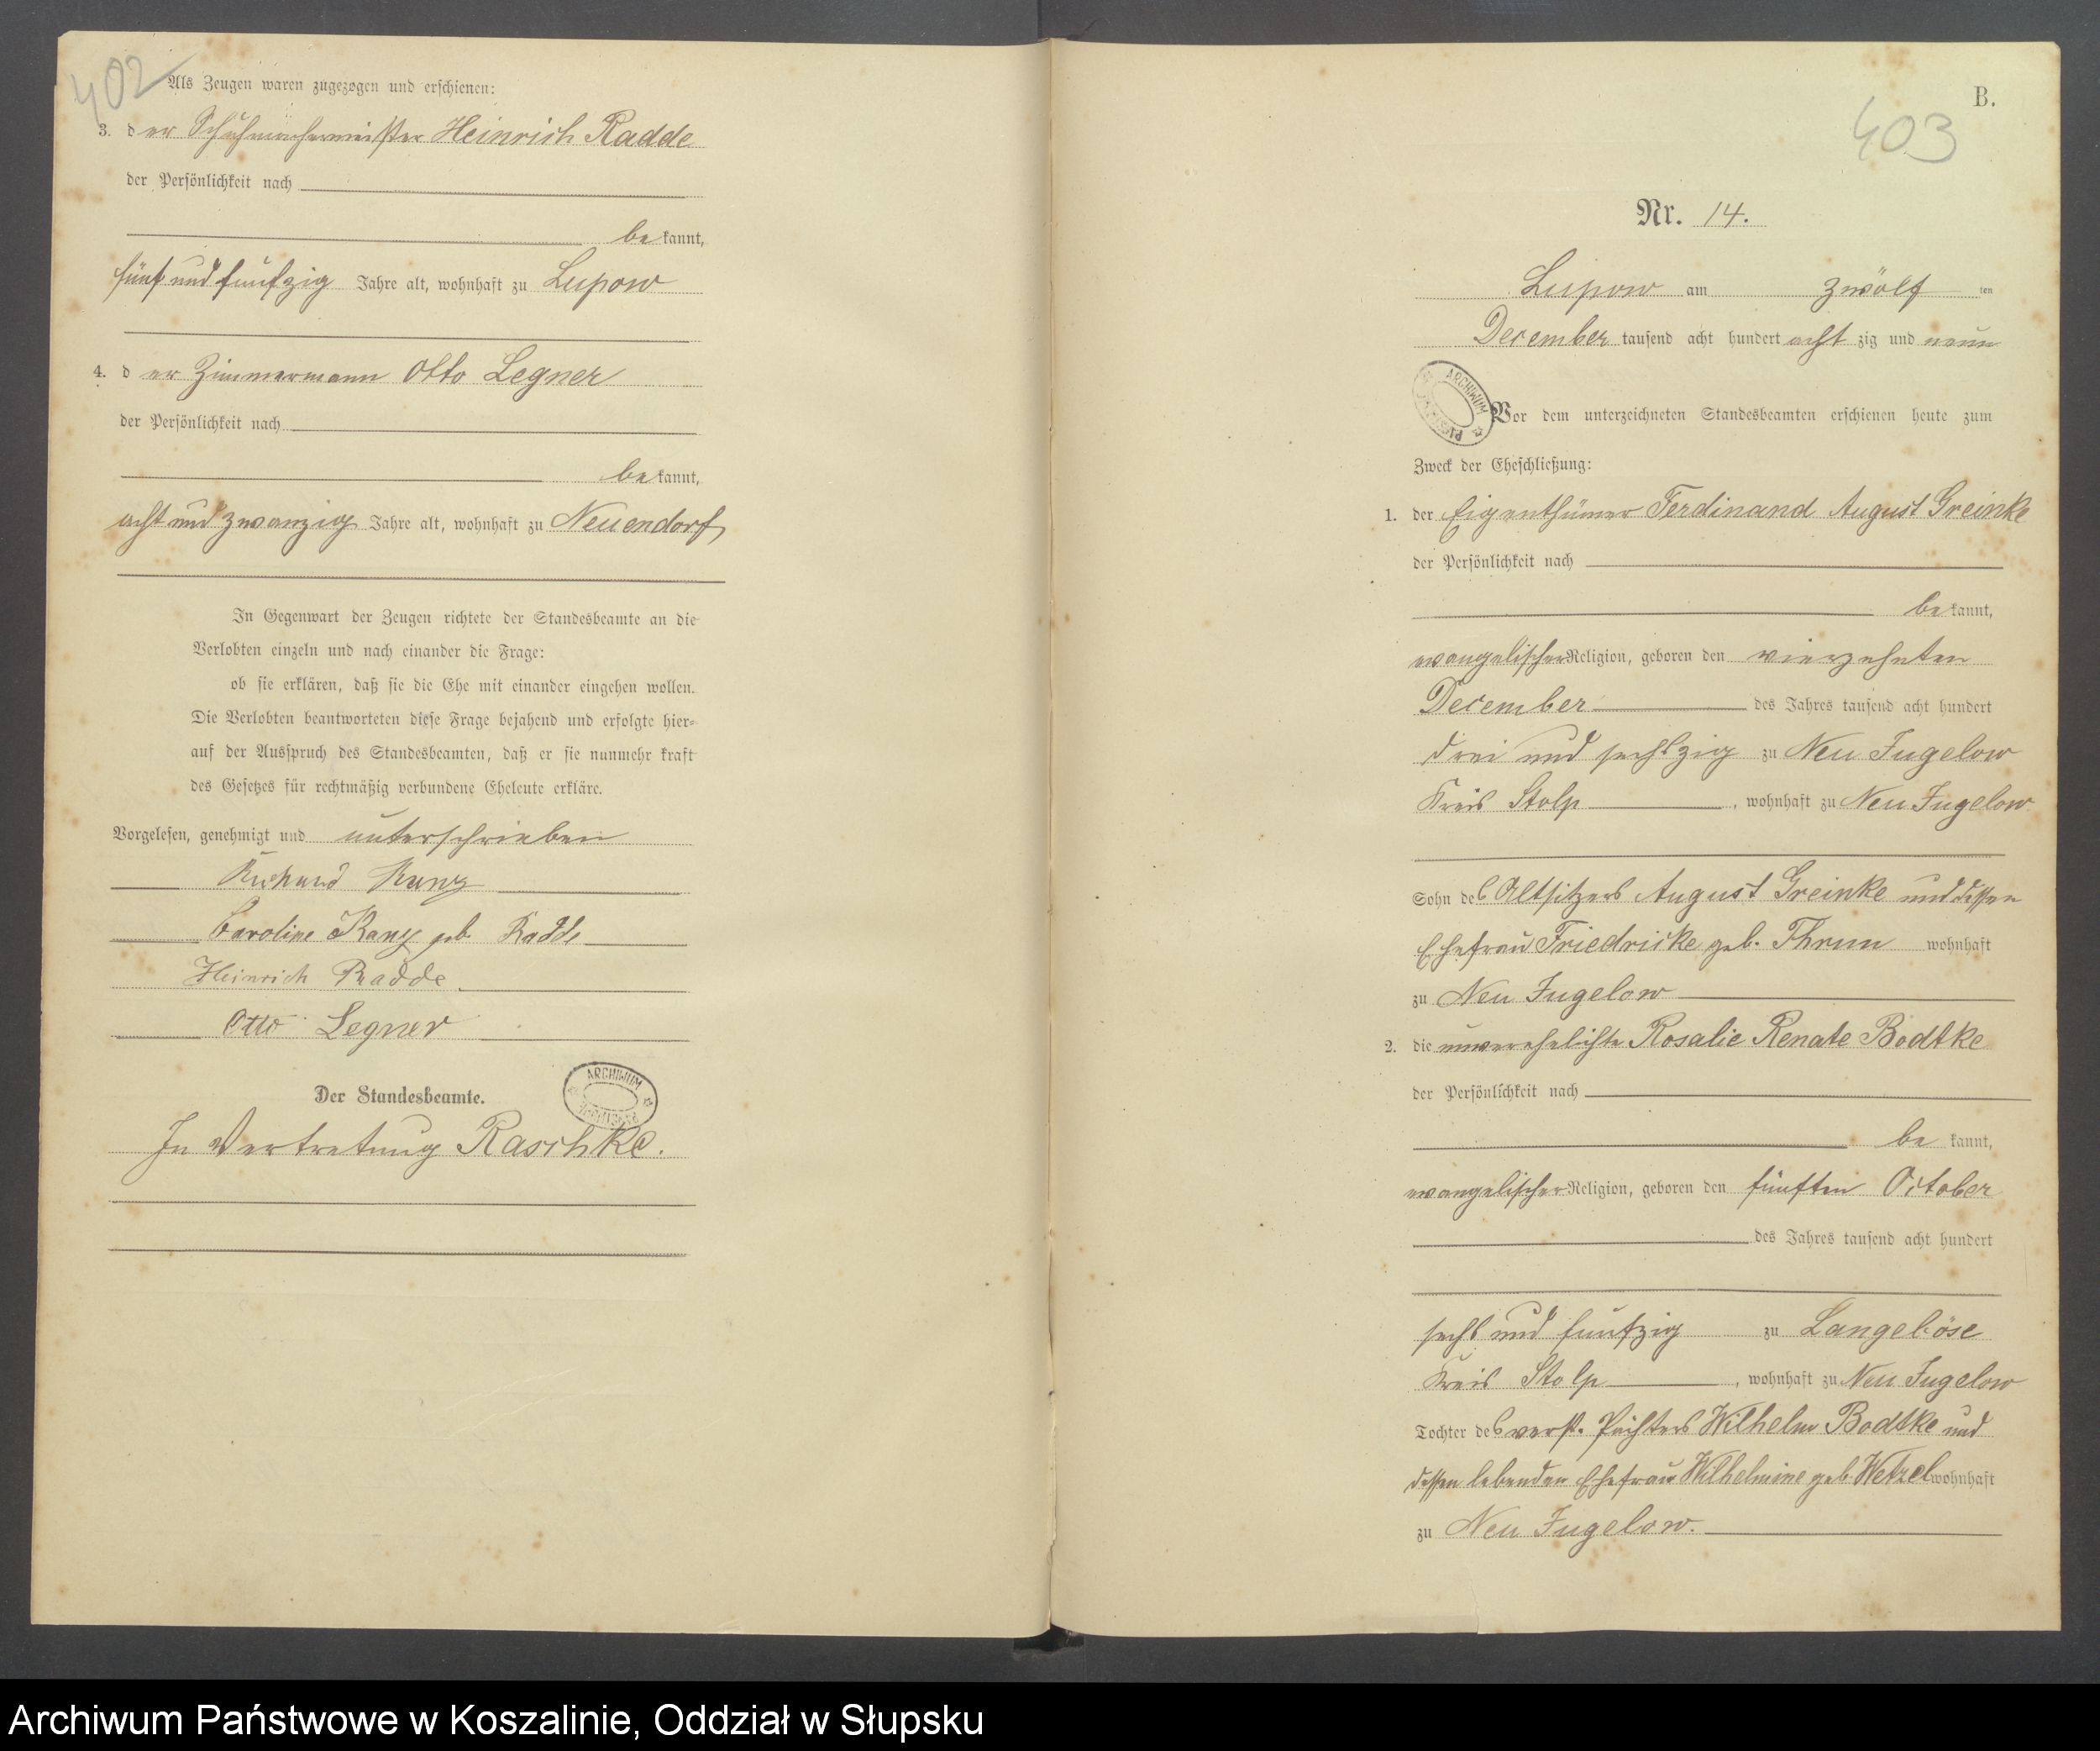 402
Als Zeugen waren zugezogen und erschienen:
3. der Schuhmachermeister Heinrich Radde
der Persönlichkeit nach
bekannt,
fünf und funfzig Jahre alt, wohnhaft zu Lupow
4. der Zimmermann Otto Legner
der Persönlichkeit nach
bekannt,
acht und zwanzig Jahre alt, wohnhaft zu Neuendorf
In Gegenwart der Zeugen richtete der Standesbeamte an die
Verlobten einzeln und nach einander die Frage:
ob sie erklären, daß sie die Ehe mit einander eingehen wollen.
Die Verlobten beantworteten diese Frage bejahend und erfolgte hier-
auf der Ausspruch des Standesbeamten, daß er sie nunmehr kraft
des Gesetzes für rechtmäßig verbundene Eheleute erkläre.
Vorgelesen, genehmigt und unterschrieben
Richard Kanz
Caroline Kanz geb Radde
Heinrich Radde
Otto Legner
ARCHIWUM
Der Standesbeamte.
In Vertretung Raschke.
B.
403
Nr. 14.
Lupow am zwölf ten
December tausend acht hundert acht zig und neun
ARCHIWUM
Vor dem unterzeichneten Standesbeamten erschienen heute zum
Zweck der Eheschließung:
1. der Eigenthümer Ferdinand August Greinke
der Persönlichkeit nach
bekannt,
evangelischer Religion, geboren den vierzehnten
December des Jahres tausend acht hundert
drei und sechszig zu Neu Jugelow
Kreis Stolp, wohnhaft zu Neu Jugelow
Sohn des Altsitzers August Greinke und dessen
Ehefrau Friedricke geb. Thrun wohnhaft
zu Neu Jugelow
2. die unverehelichte Rosalie Renate Bodtke
der Persönlichkeit nach
be kannt,
evangelischer Religion, geboren den fünften October
des Jahres tausend acht hundert
sechs und funfzig zu Langeböse
Kreis Stolp, wohnhaft zu Neu Jugelow
Tochter des verst. Pächters Wilhelm Bodtke und
dessen lebenden Ehefrau Wilhelmine geb. Wetzel wohnhaft
zu Neu Jugelow.
Archiwum Państwowe w Koszalinie, Oddział w Słupsku